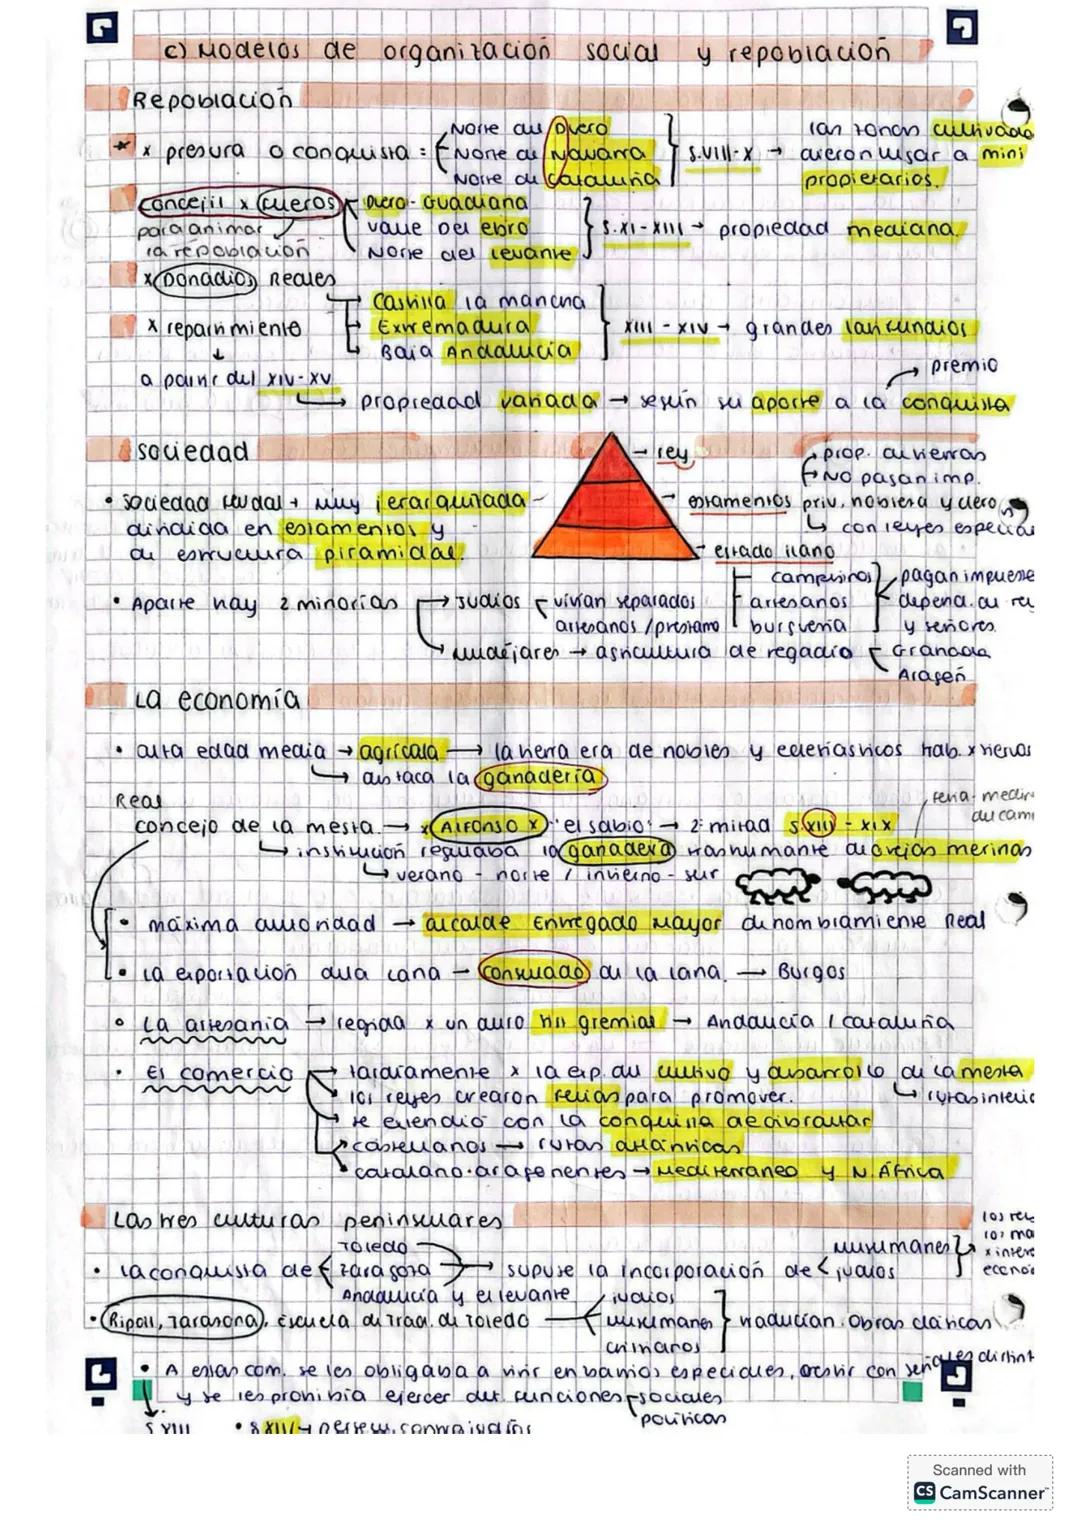 c) Modelos de organización social y repoblación
Repoblación
x presura o conquista:
Norte del Duero
Norte de Navarra
Norte de Cataluña
S.VIII-X →
las zonas cultivada
dieron lugar a mini
propietarios.
Concejil x fueros
para animar
la repoblación
Duero - Guadiana
valle del ebro
Norte del levante
S.XI-XIII → propiedad mediana
x Donadíos Reales
x repartimiento
Castilla la mancha
Extremadura
Baja Andalucía
XIII - XIV → grandes latifundios
a partir del XIV-XV
→ propiedad variada → según su aporte a la conquista
→ premio
Sociedad
• sociedad feudal + muy jerarquizada
dividida en estamentos y
de estructura piramidal.
→ rey
→ estamentos priv. nobleza y clero
→ prop. de tierras
→ No pagan imp.
↳ con leyes especia
→ estado llano
campesinos
artesanos
burguesía
pagan impuese
depend. de re
y señores.
• Aparte hay 2 minorías
→ Judíos
vivían separados
artesanos / préstamo
→ mudéjares → agricultura de regadío
Granada
Aragón
La economía
• alta edad media → agrícola → la tierra era de nobles y eclesiásticos trab. x siervos
↳ destaca la ganadería
Real
concejo de la mesta. → x Alfonso X "el sabio" → 2ª mitad S.XIII - XIX
feria - medin
del cam
↳ institución regulaba la ganadera trashumante de ovejas merinas
↳ verano - norte / invierno - sur
• máxima autoridad → alcalde Entregado Mayor de nombramiento Real
• La exportación de la lana → consulado de la lana. → Burgos
• La artesanía → regida x un duro gremial → Andalucía / cataluña
• El comercio
→ tardíamente x la exp. del cultivo y desarrollo de la mesta
↳ rutas interio
→ los reyes crearon ferias para promover.
→ se extendió con la conquista de Gibraltar
→ castellanos → rutas atlánticas
→ catalano-aragonenses → Mediterraneo y N. África
Las tres culturas peninsulares
• la conquista de
Toledo
zaragoza
Andalucía y el levante
→ supuso la incorporación de
musulmanes
judíos
los rey
los ma
x intere
econó
• Ripoll, Tarazona, Escuela de Trad. de Toledo
judíos
musulmanes
cristianos
traducían obras clásicas
• A estas com. se les obligaba a vivir en barrios especiales, vestir con señales distint
y se les prohibía ejercer det. funciones
sociales
políticas
S XIII
• S XIV →
Scanned with
CS CamScanner